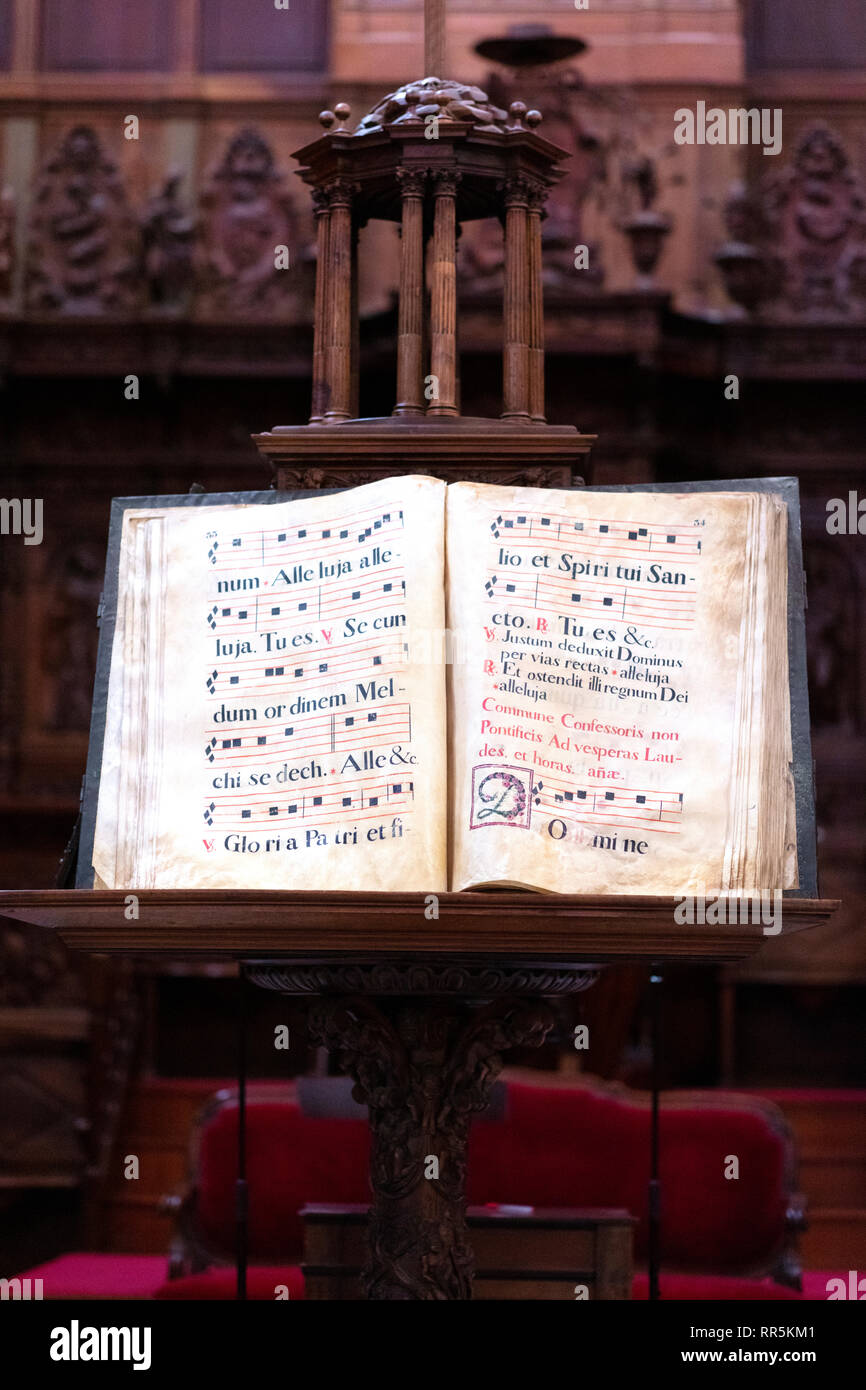 33
num. Alle luja alle-
luja. Tu es. ℣ Se cun
dum or dinem Mel-
chi se dech. * Alle &c.
℣ Glo ri a Pa tri et fi-
34
lio et Spi ri tui San-
cto. ℟ Tu es &c.
℣ Justum deduxit Dominus
per vias rectas * alleluja
℟ Et ostendit illi regnum Dei
* alleluja
Commune Confessoris non
Pontificis Ad vesperas Lau-
des, et horas. añæ.
D
O mi ne
alamy
Image ID: RR5KM1
www.alamy.com